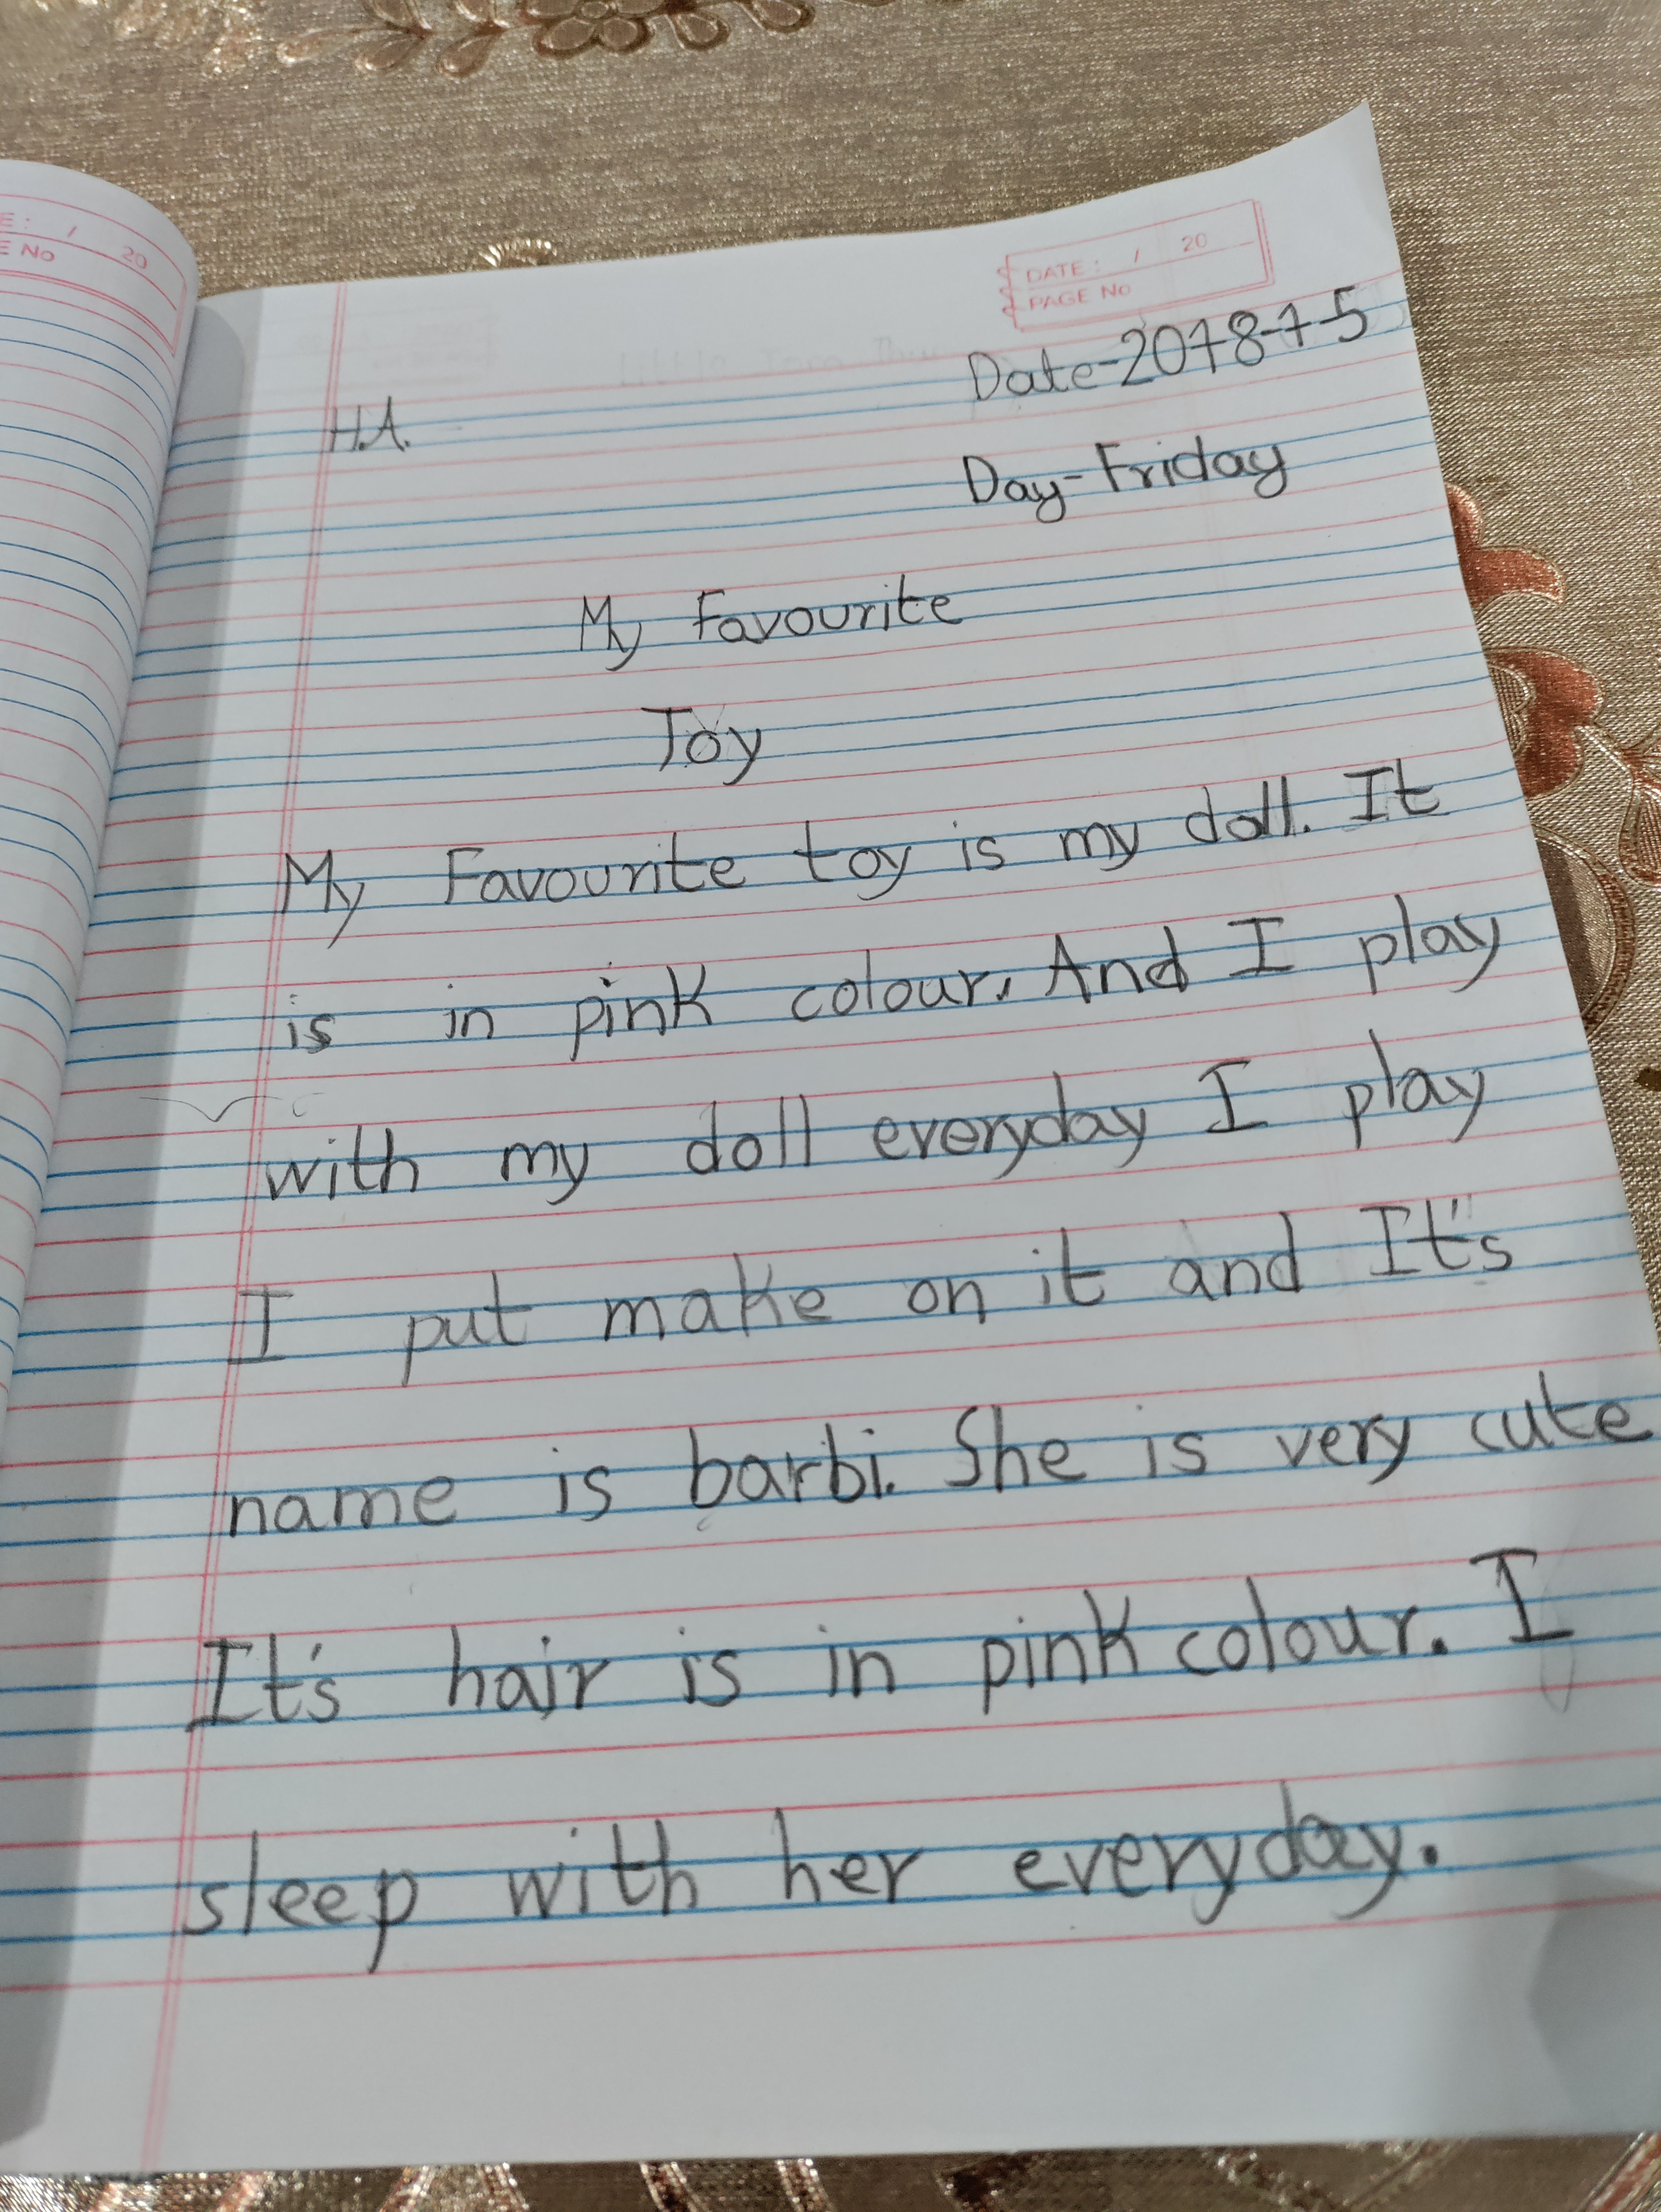 E: / 20
E No
DATE: / 20
PAGE No
Date-2078-7-5
H.A.
Day-Friday
My Favourite
Toy
My Favourite toy is my doll. It
is in pink colour. And I play
with my doll everyday I play
I put make on it and It's
name is barbi. She is very cute
It's hair is in pink colour. I
sleep with her everyday.